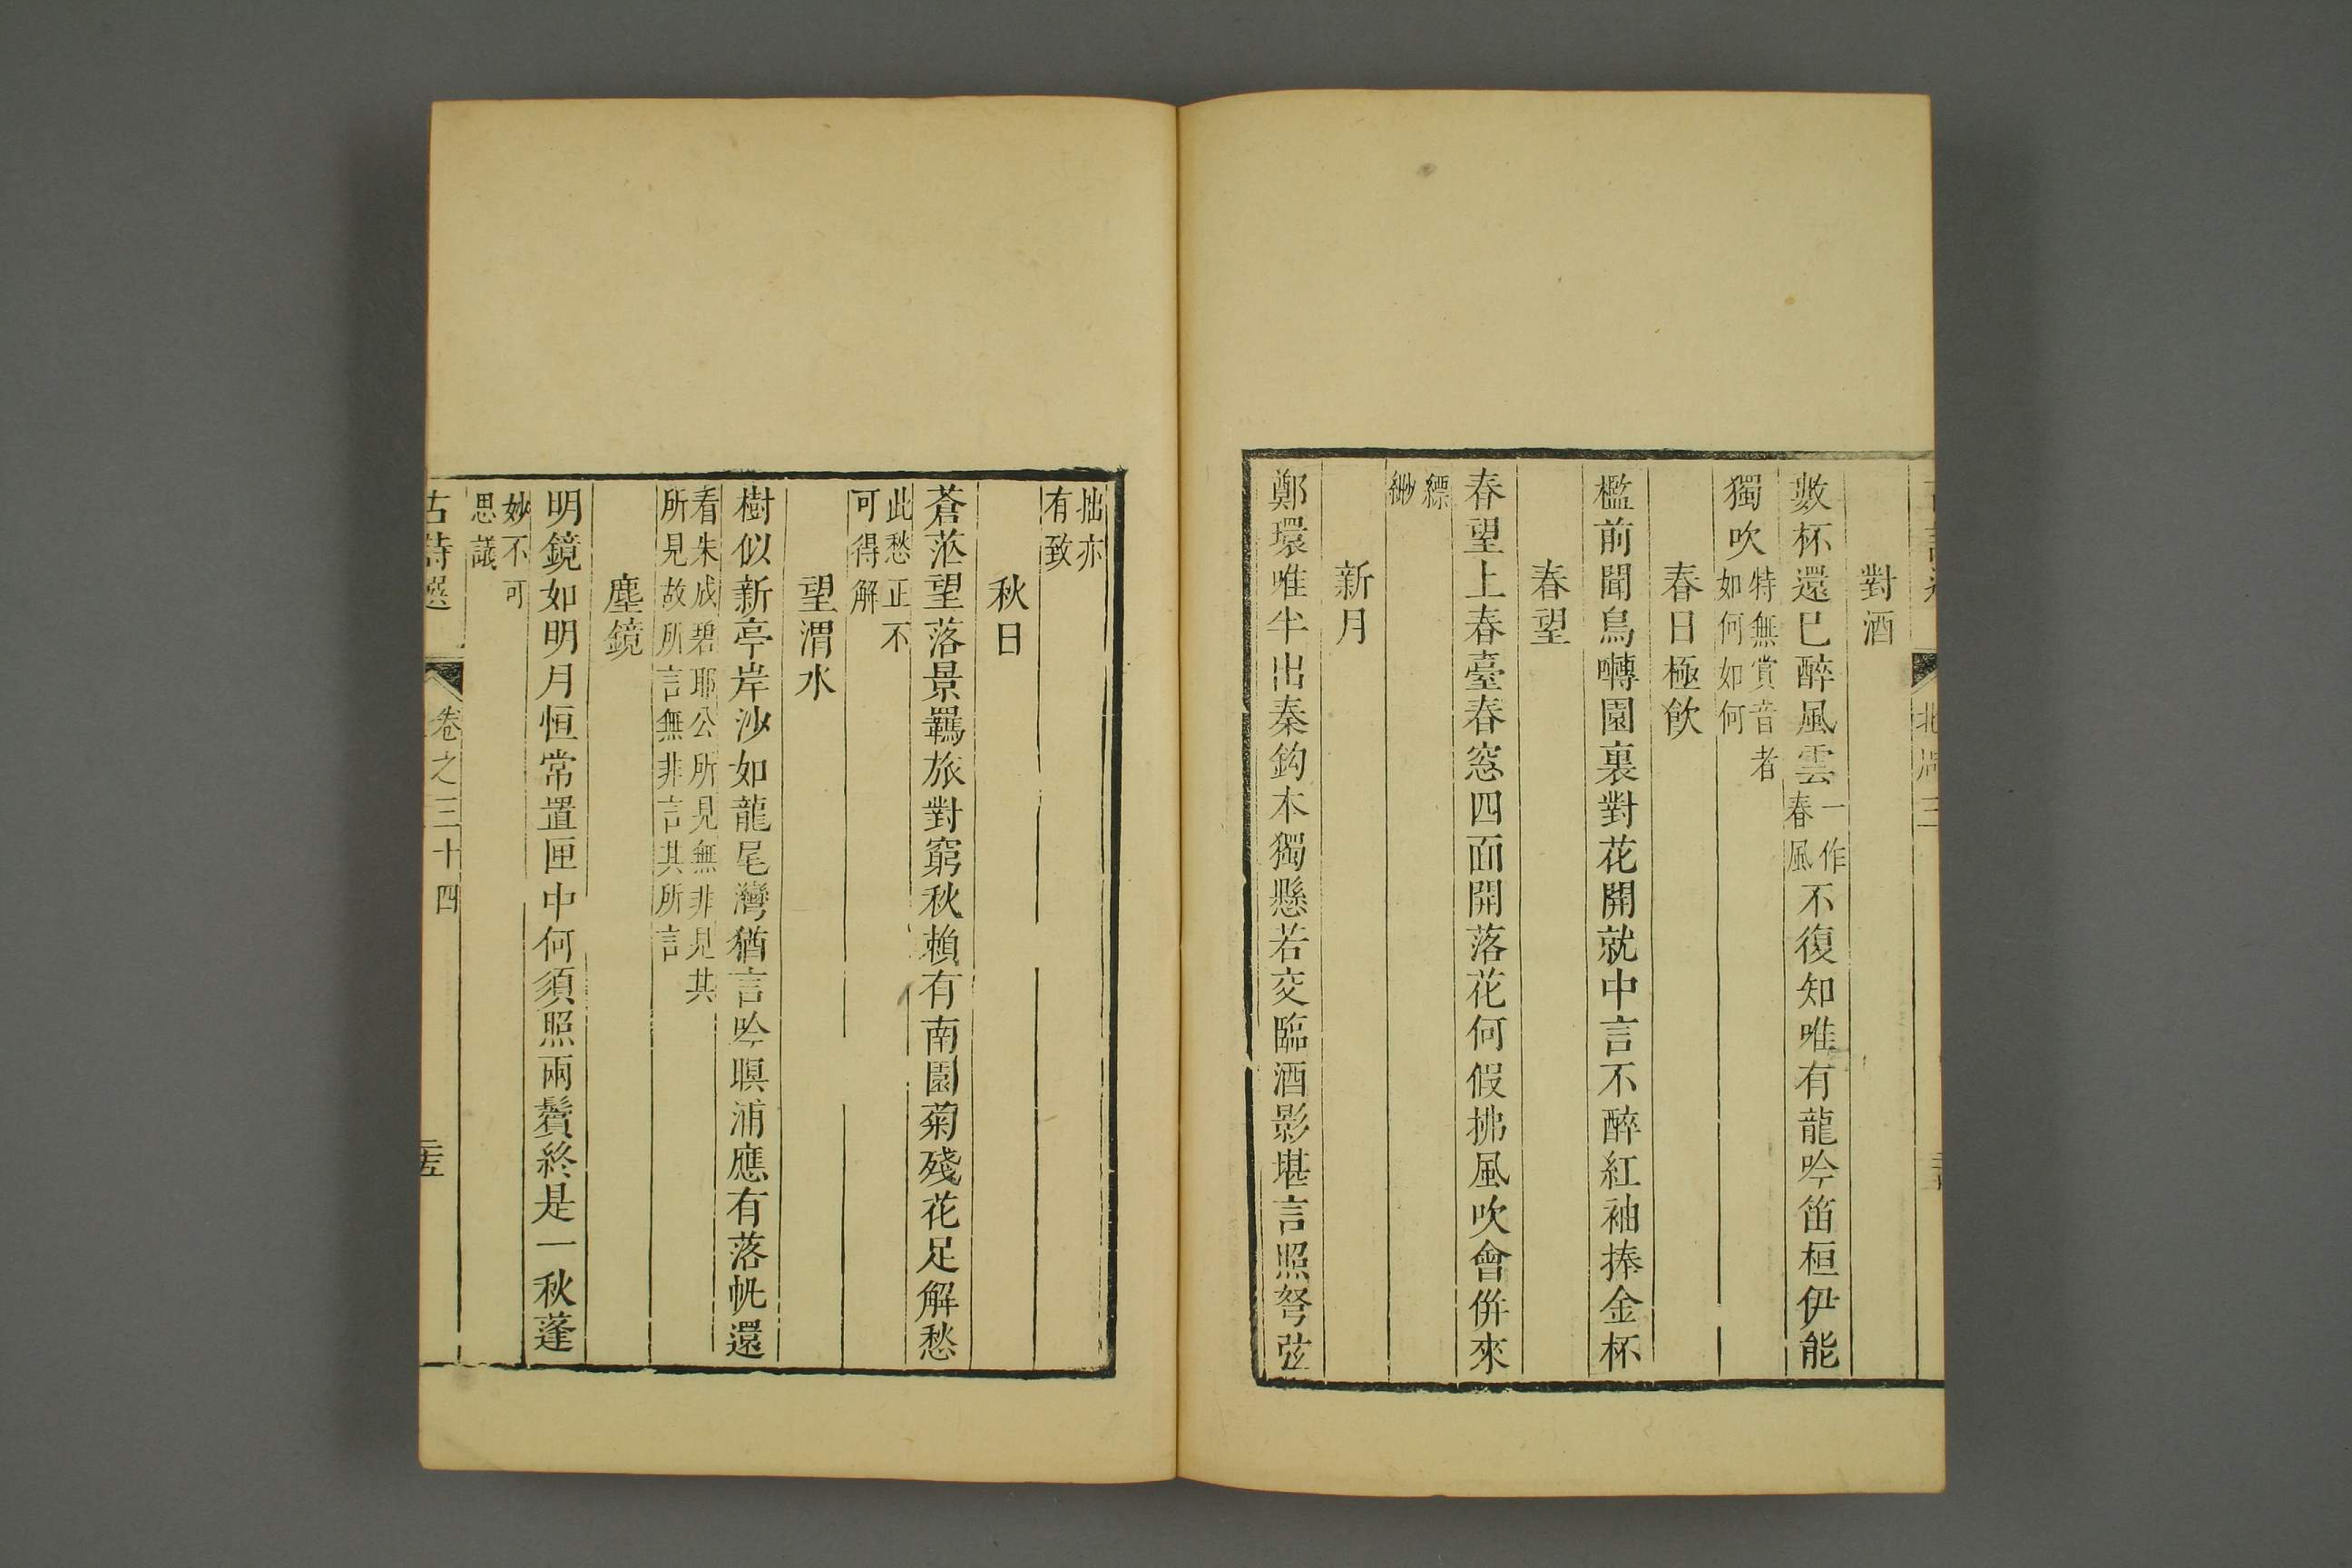 北周三
對酒
數杯還已醉風雲一作春風不復知唯有龍吟笛桓伊能
獨吹特無賞音者如何如何
春日極飲
檻前聞鳥囀園裏對花開就中言不醉紅袖捧金杯
春望
春望上春臺春窓四面開落花何假拂風吹會併來
縹緲
新月
鄭環唯半出秦鈎本獨懸若交臨酒影堪言照弩弦
拙亦有致
秋日
蒼茫望落景羈旅對窮秋賴有南園菊殘花足解愁
此愁正不可得解
望渭水
樹似新亭岸沙如龍尾灣猶言吟暝浦應有落帆還
看朱成碧耶公所見無非見其所見故所言無非言其所言
塵鏡
明鏡如明月恒常置匣中何須照兩鬢終是一秋蓬
妙不可思議
古詩選 卷之三十四 二十五